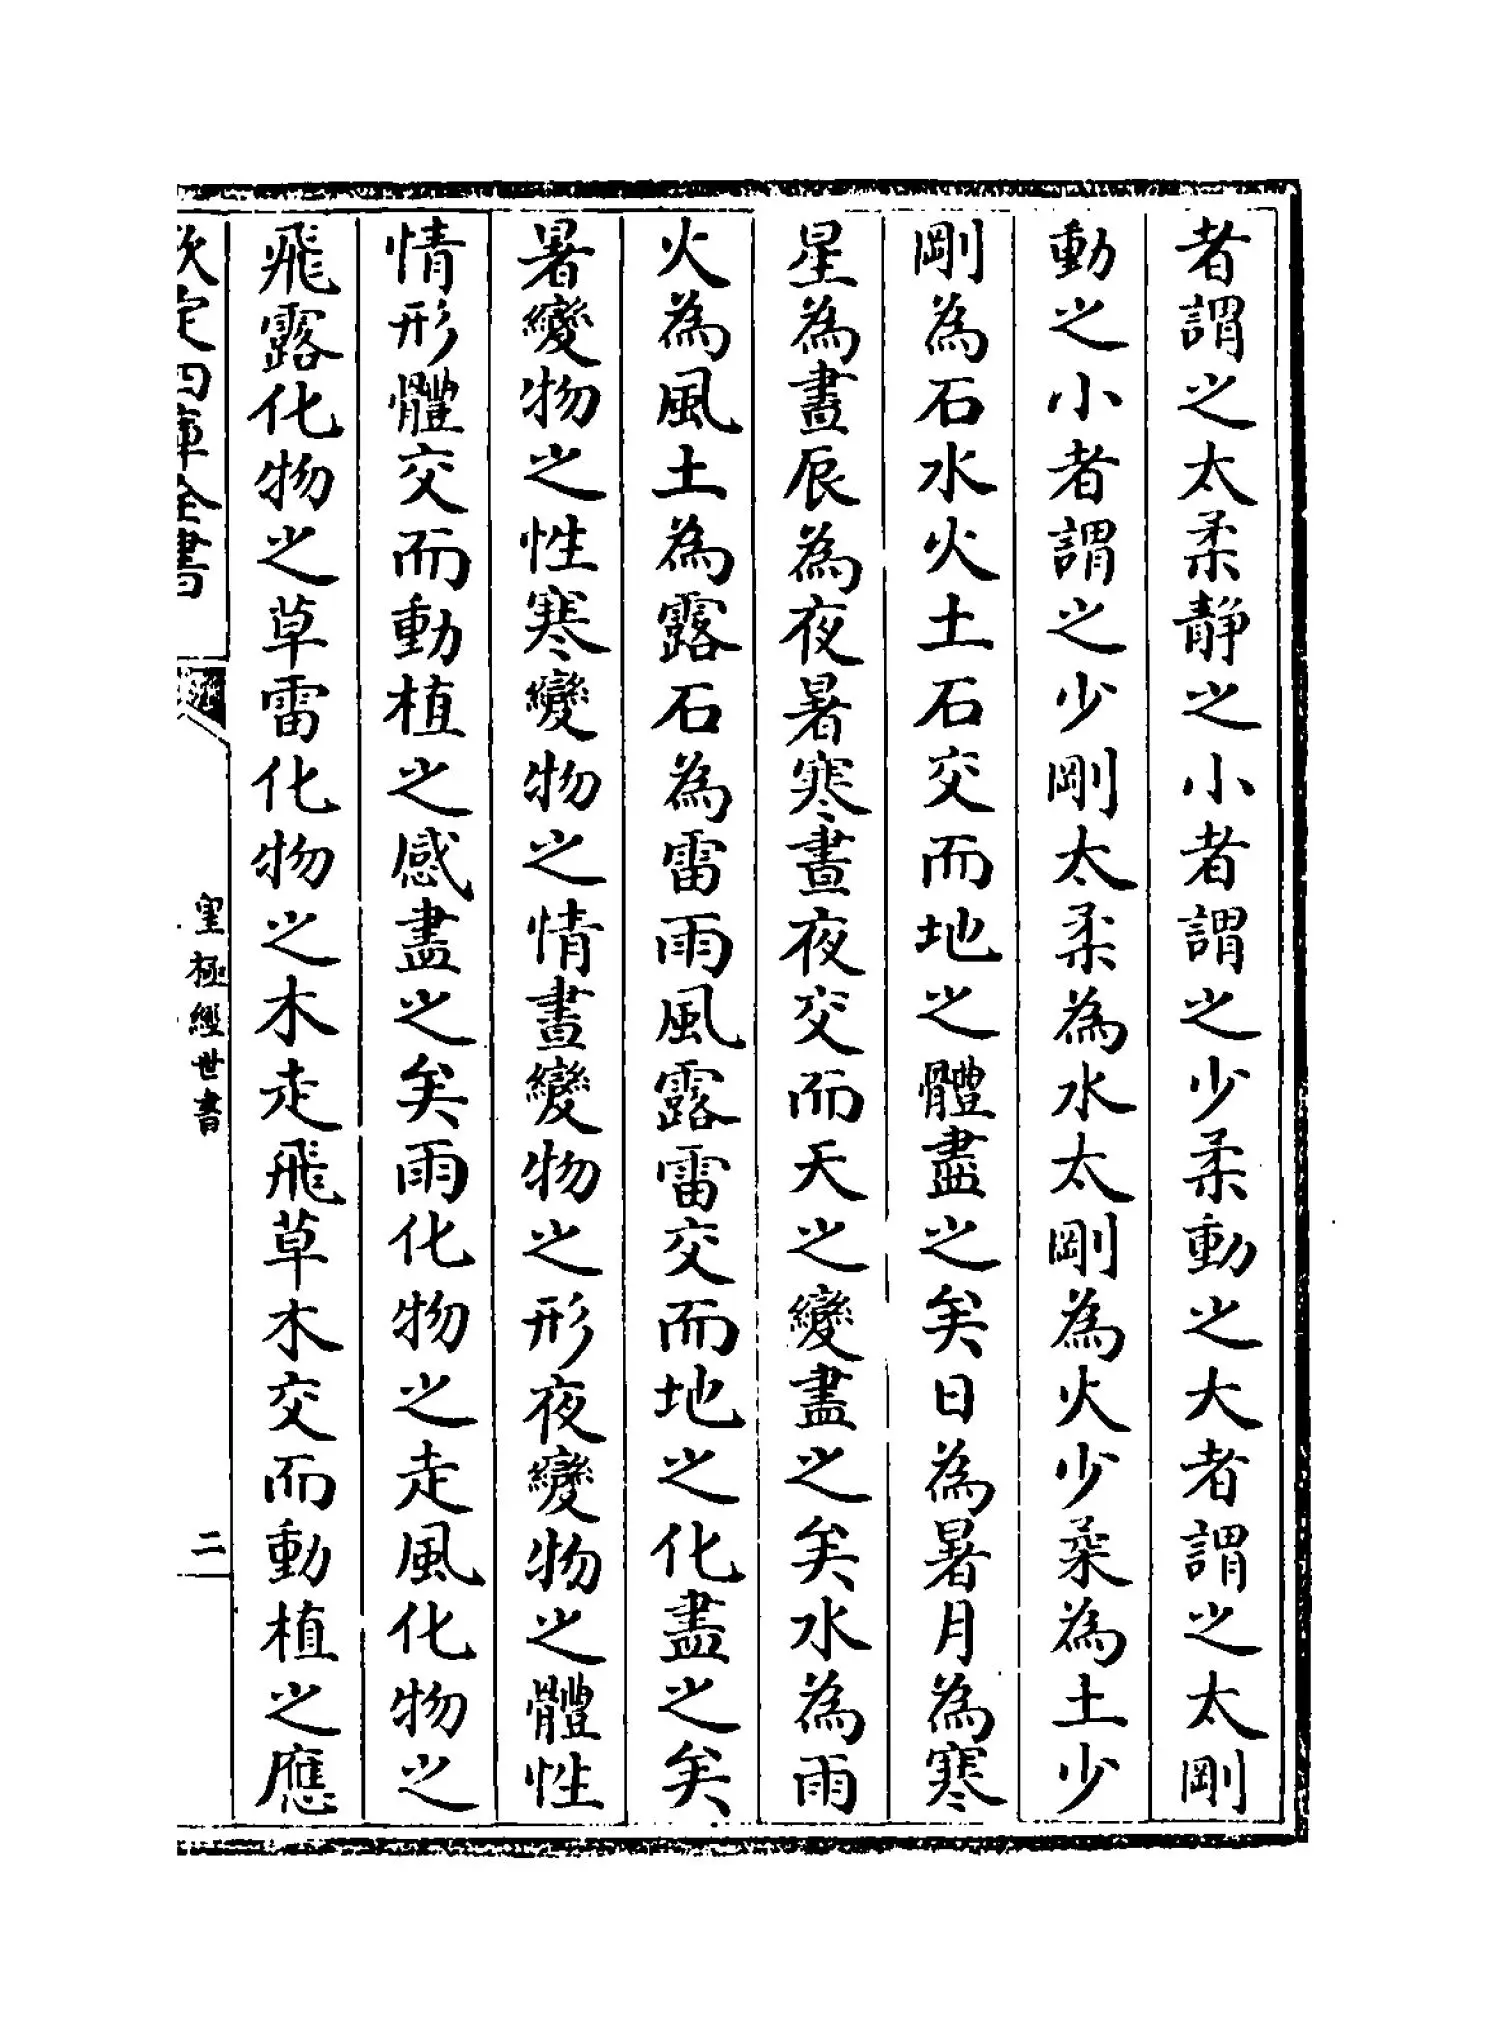 者謂之太柔静之小者謂之少柔動之大者謂之太剛
動之小者謂之少剛太柔為水太剛為火少柔為土少
剛為石水火土石交而地之體盡之矣日為暑月為寒
星為晝辰為夜暑寒晝夜交而天之變盡之矣水為雨
火為風土為露石為雷雨風露雷交而地之化盡之矣
暑變物之性寒變物之情晝變物之形夜變物之體性
情形體交而動植之感盡之矣雨化物之走風化物之
飛露化物之草雷化物之木走飛草木交而動植之應
欽定四庫全書
皇極經世書
二